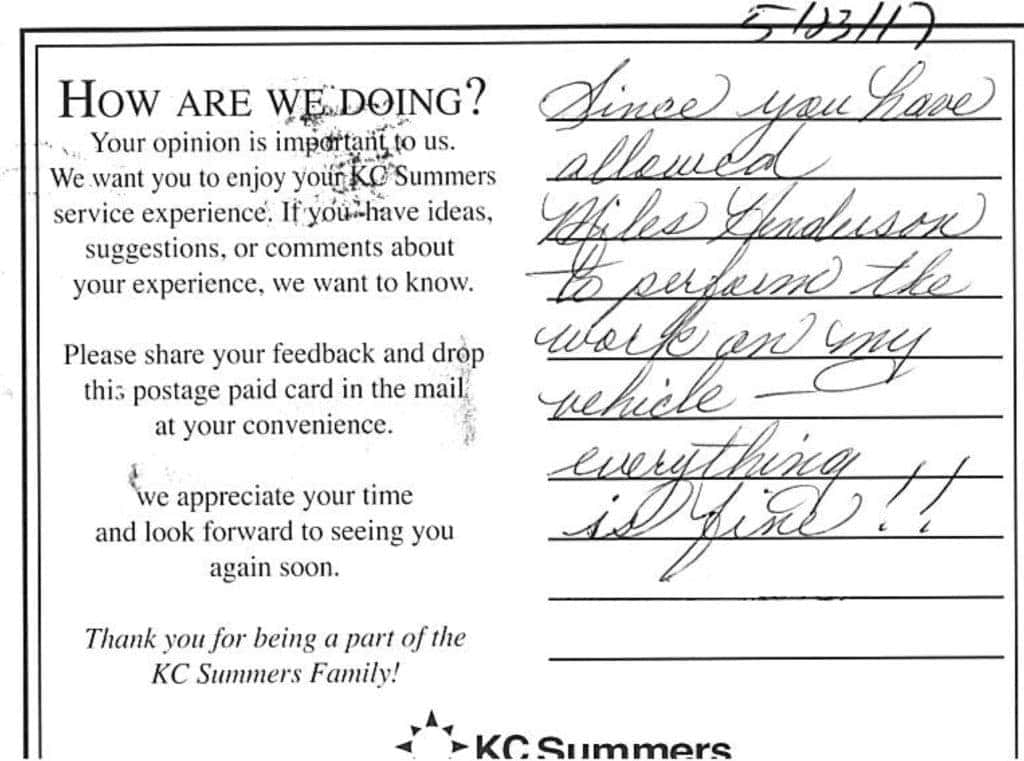 5/23/17
HOW ARE WE DOING?
Your opinion is important to us.
We want you to enjoy your KC Summers
service experience. If you have ideas,
suggestions, or comments about
your experience, we want to know.
Please share your feedback and drop
this postage paid card in the mail
at your convenience.
we appreciate your time
and look forward to seeing you
again soon.
Thank you for being a part of the
KC Summers Family!
Since you have
allowed
Miles Henderson
to perform the
work on my
vehicle —
everything
is fine!!
KC Summers